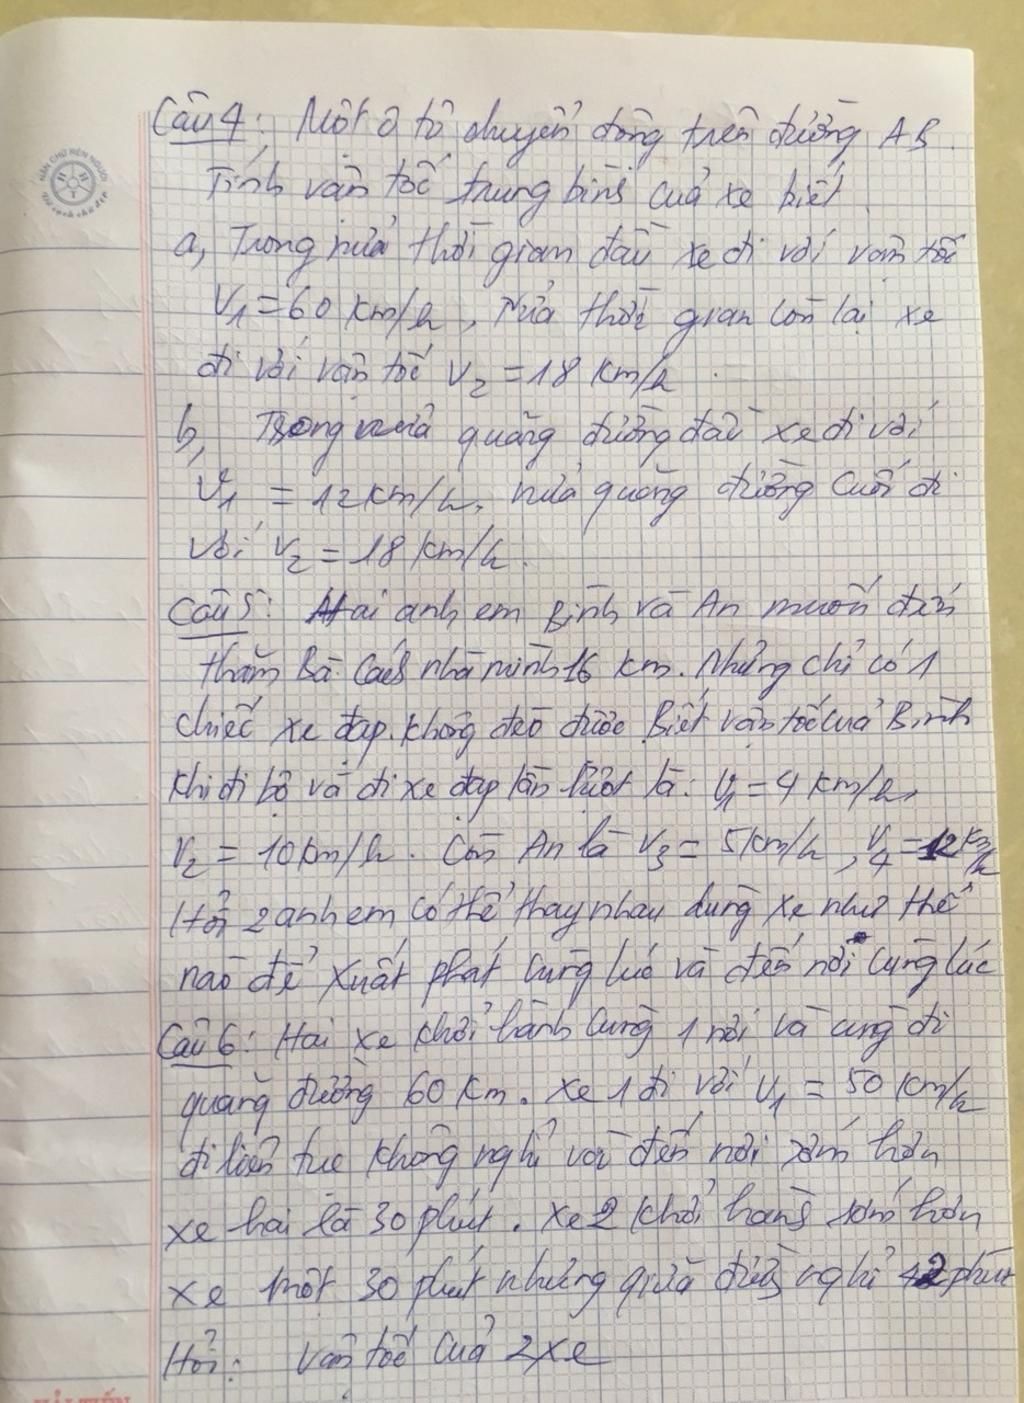 Câu 4: Một ô tô chuyển động trên đường AB.
Tính vận tốc trung bình của xe biết.
a, Trong nửa thời gian đầu xe đi với vận tốc
V1 = 60 km/h, Nửa thời gian còn lại xe
đi với vận tốc V2 = 18 km/h.
b, Trong nửa quãng đường đầu xe đi với
V1 = 12 km/h, nửa quãng đường cuối đi
với V2 = 18 km/h.
Câu 5: Hai anh em Bình và An muốn đến
thăm Bà cách nhà mình 16 km. Nhưng chỉ có 1
chiếc xe đạp không đèo được Biết vận tốc của Bình
khi đi bộ và đi xe đạp lần lượt là: V1 = 4 km/h,
V2 = 10 km/h. Còn An là V3 = 5 km/h, V4 = 12 km/h
Hỏi 2 anh em có thể thay nhau dùng xe như thế
nào để xuất phát cùng lúc và đến nơi cùng lúc
Câu 6: Hai xe khởi hành cùng 1 nơi và cùng đi
quãng đường 60 km. Xe 1 đi với V1 = 50 km/h
đi liên tục không nghỉ và đến nơi sớm hơn
xe hai là 30 phút. Xe 2 khởi hành sớm hơn
xe một 30 phút nhưng giữa đường nghỉ phút
Hỏi: Vận tốc của 2 xe
HẢI TIẾN